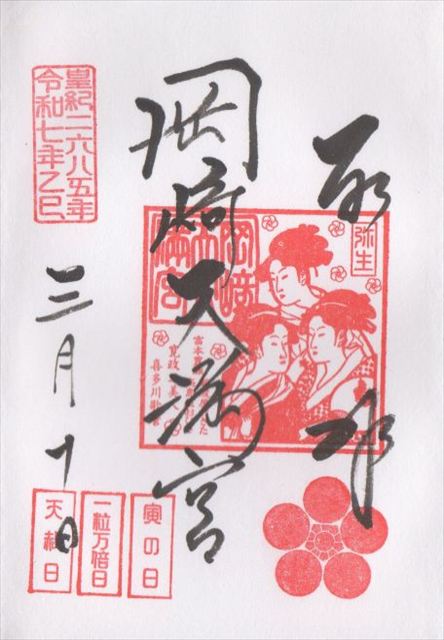 奉拝
弥生
岡崎天満宮
岡崎天満宮
寛政三美人
喜多川歌麿
皇紀二六八五年
令和七年乙巳
三月十日
寅の日
一粒万倍日
天赦日